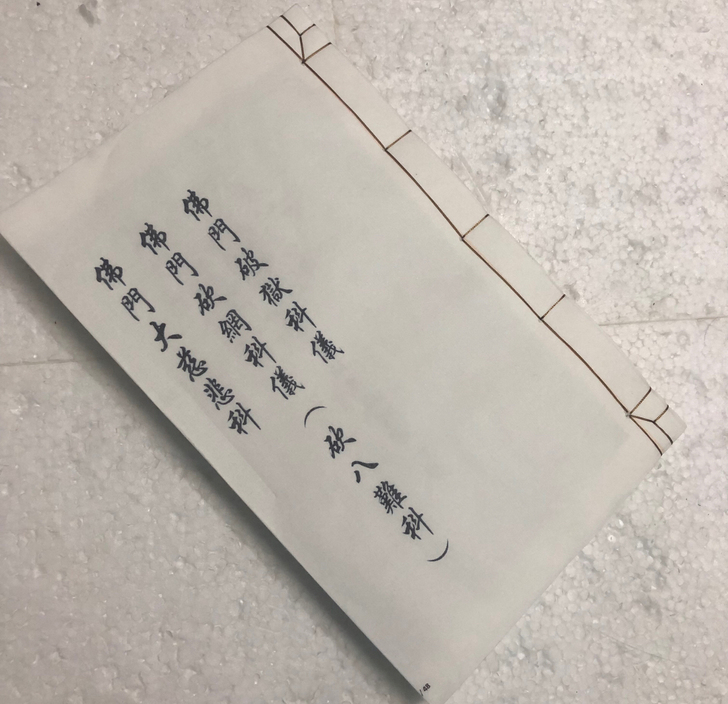 佛門破獄科儀
佛門砍網科儀(砍八難科)
佛門大慈悲科
/ 48